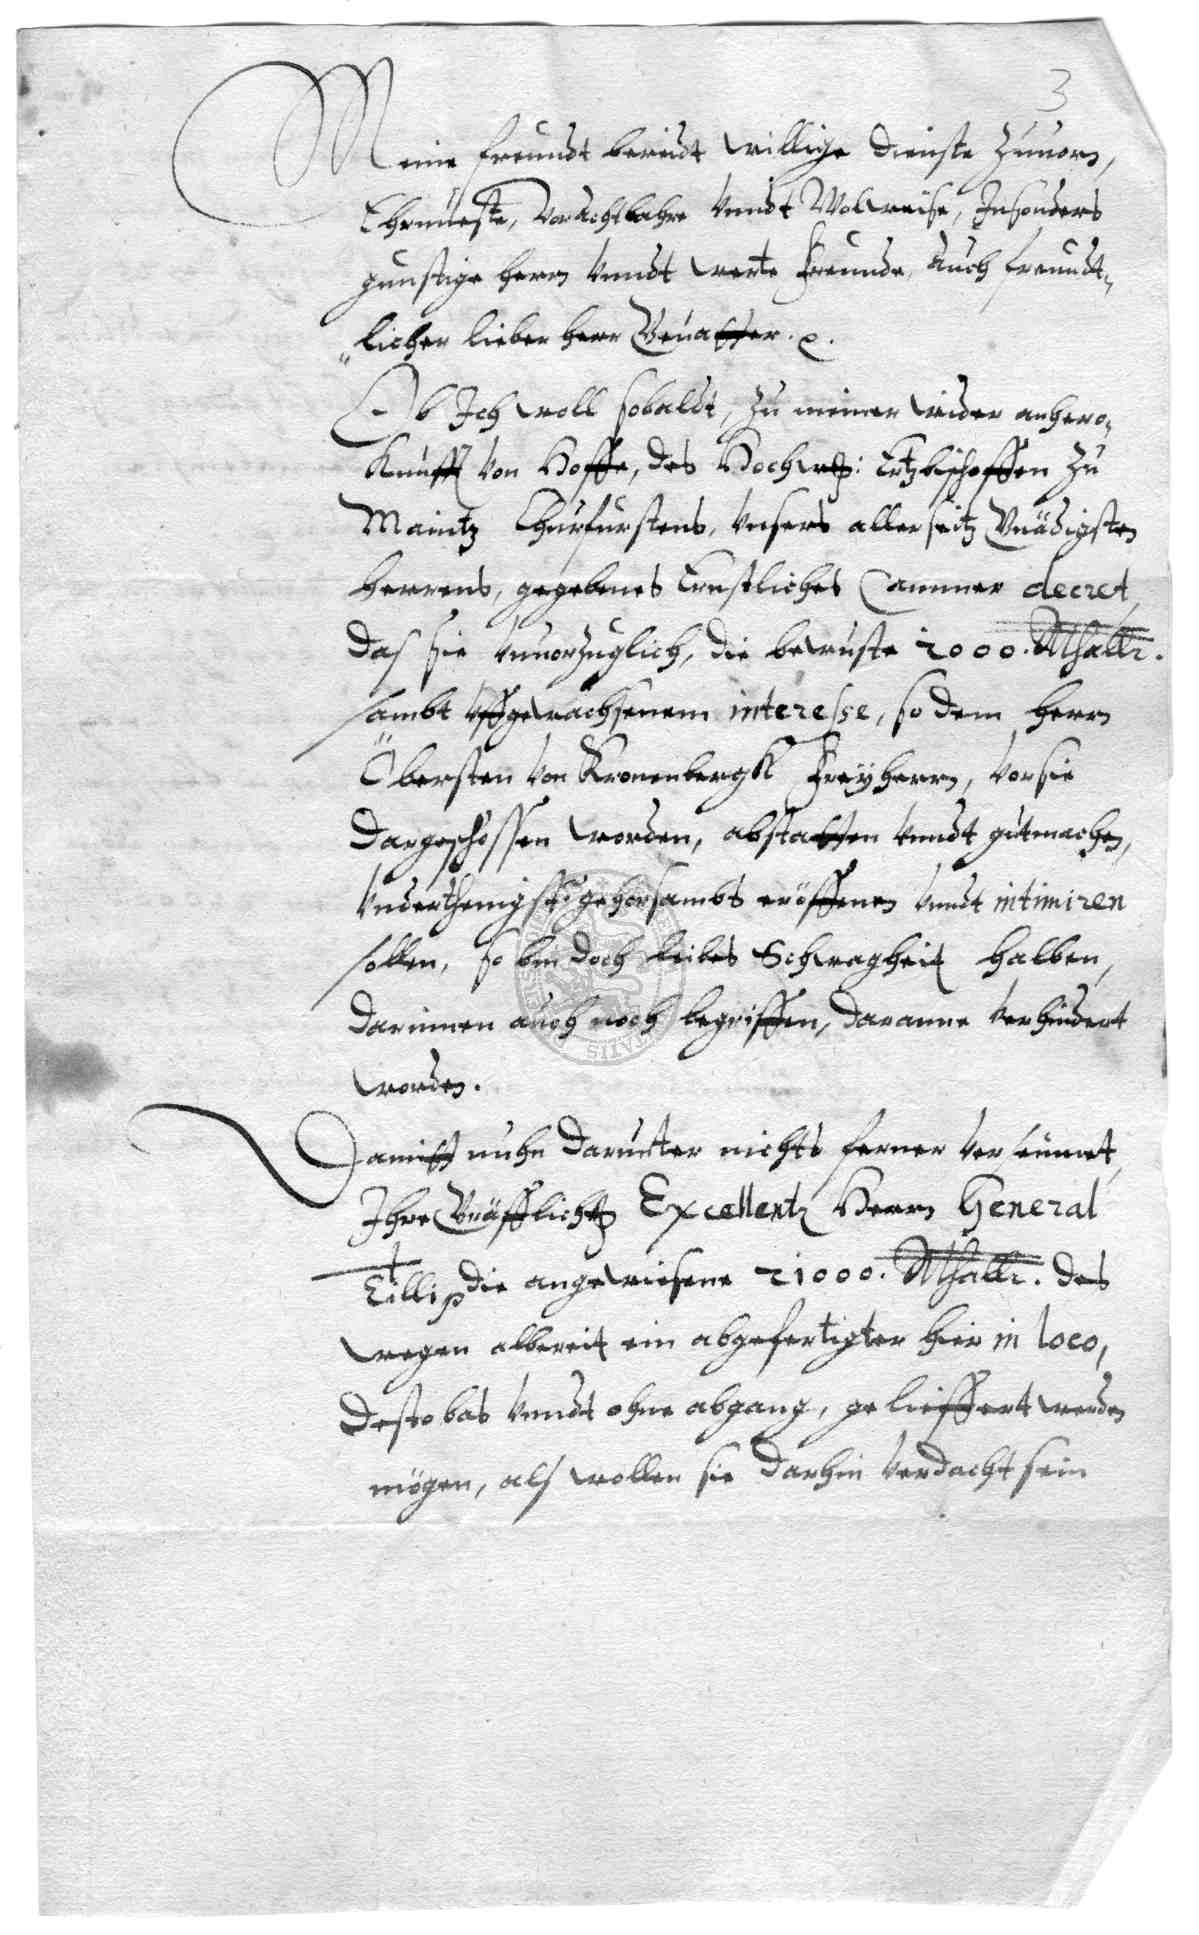 3
Meine freundt bereidt willige dienste zuuorn,
Ehrnueste, Vorachtbahre Vnndt Wolweise, Insonders
gunstige herrn Vnndt werte Freunde, Auch freundt-
licher lieber herr Geuatter.
Ob Ich woll sobaldt, zu meiner wider anhero-
Kunfft Von Hoffe, des Hochw: Ertzbischoffen zu
Maintz Churfurstens, Vnsers allerseitz Gnädigsten
herrens, gegebenes Ernstliches Cammer decret,
das sie Vnuorzuglich, die bewuste 2000. Rthallr.
sambt Vffgewachsenem interesse, so dem herrn
Öbersten Von Kronenbergk Freÿherrn, Vor sie
dargeschossen worden, abstatten Vnndt gutmachen,
Vnderthenigst gehorsambts eröffenen Vnndt intimiren
sollen, so bin doch leibes Schwagheit halben,
darinnen auch noch begriffen, daranne Verhindert
worden.
Damitt nuhn darunter nichts ferner Verseumet,
Ihre Gräfflichen Excellentz Herrn General
Tilli die angewiesene 21000. Rthallr. des
wegen albereit ein abgefertigter hier in loco,
desto bas Vnndt ohne abgang, gelieffert werden
mögen, als wollen sie darhin Verdacht sein